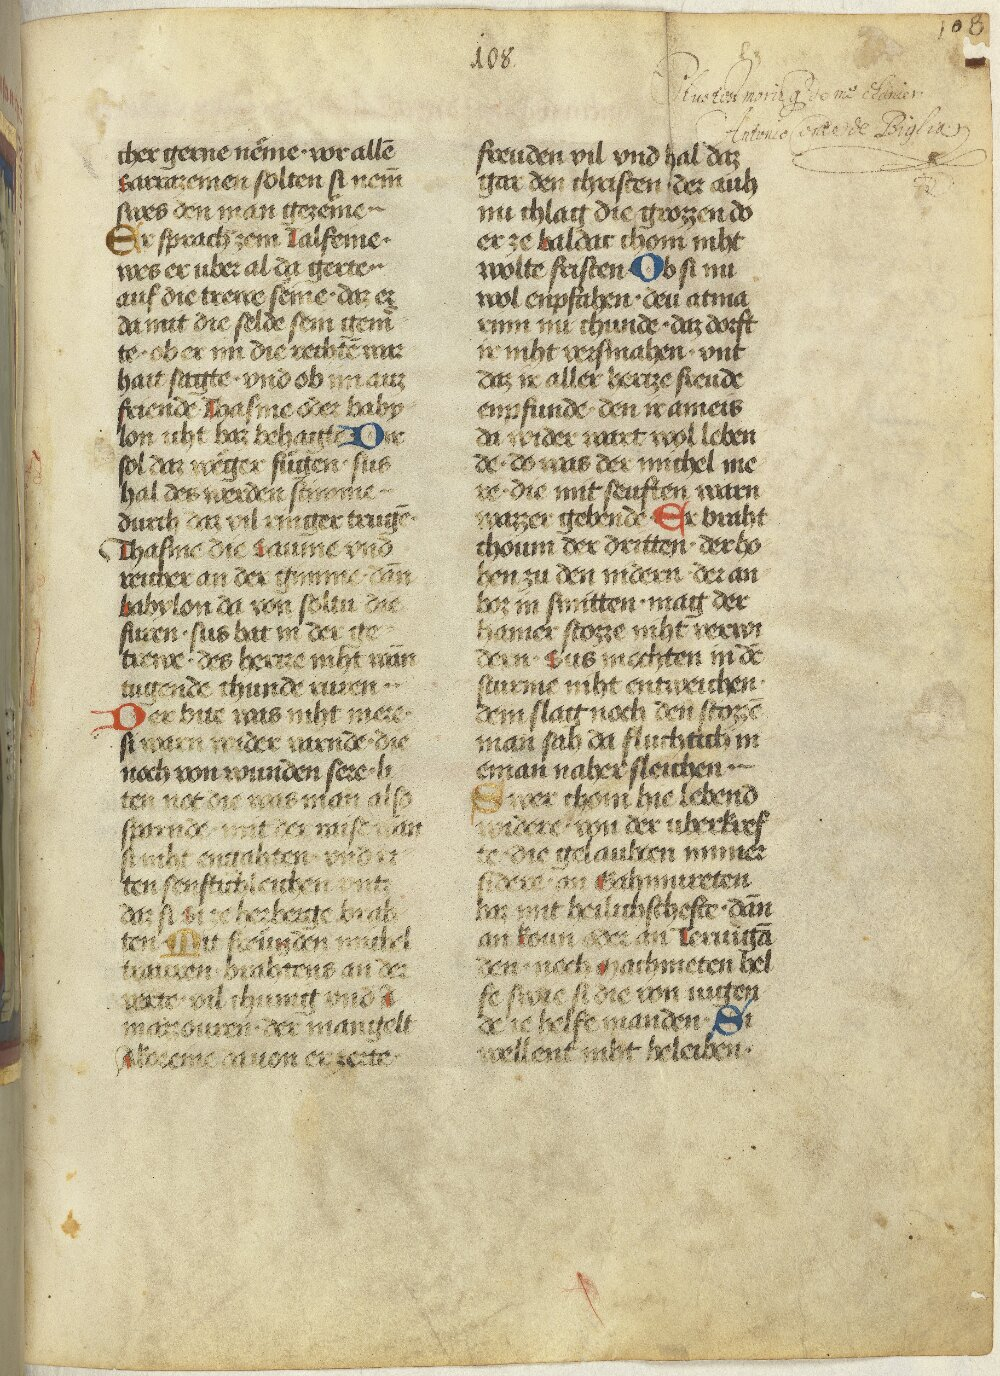 108
108
Antonio de Biglia
cher gerne neme · vor alle͞
sarrazeinen solten si nem͞
swes den man gezeme ·
Er sprach zem Talfeine ·
wes er uber al da gerte ·
auf die trewe seine · daz er
da mit die selde sein gem͞
te · ob er im die rechte͞ war
hait sagte · vnd ob im auz
friende Thasme oder baby
lon iht baz behagte Der
sol daz weger fugen · sus
hal des werden stimme ·
durch daz vil ringer truge͞ ·
Thasme die saume vnd
reicher an der gimme · dan͞
babylon da von soltu die
furen · sus bat in der ge
trewe · des herze niht wan͞
tugende chunde ruren ·
Der hue was niht mere ·
si warn wider varnde · die
noch von wunden sere · li
ten not die was man also
sparnde · mit der wise wan
si niht engahten · vnd ri
ten senftichleichen vntz
daz si si ze herberge brah
ten Mit freunden michel
trauren · brahtens an der
verte · vil chunig vnd A
mazzouren · der mangelt
Akozeme da von er zerte ·
freuden vil vnd hal daz
gar den christen · der auh
nu chlag die grozzen do
er ze baldac chom niht
wolte fristen Ob si nu
wol enpfahen · deu atma
rinn nu chunde · daz dorft
ir niht versmahen · vnt
daz ir aller hertze freude
empfunde · den ir ameis
da wider wart wol leben
de · do was der michel me
re · die mit seuften warn
wazzer gebende Er braht
choum der dritten · der ho
hen zu den nidern · der an
boz in smitten · mag der
hamer stozze niht verwi
dern · Sus mochten in de͞
sturme niht entweichen ·
dem slag noch den stozze͞
man sah da fluchtich in
eman naher sleichen ·
Swer chom hie lebend
widere · von der uberkref
te · die gelaubten nimmer
sidere · an Gahmureten
baz mit heilichschefte · dan͞
an koun oder an Teruiga͞
den · noch Machmeten hel
fe swie si die von iugen
de ie helfe manden · Si
wellent niht beleiben ·